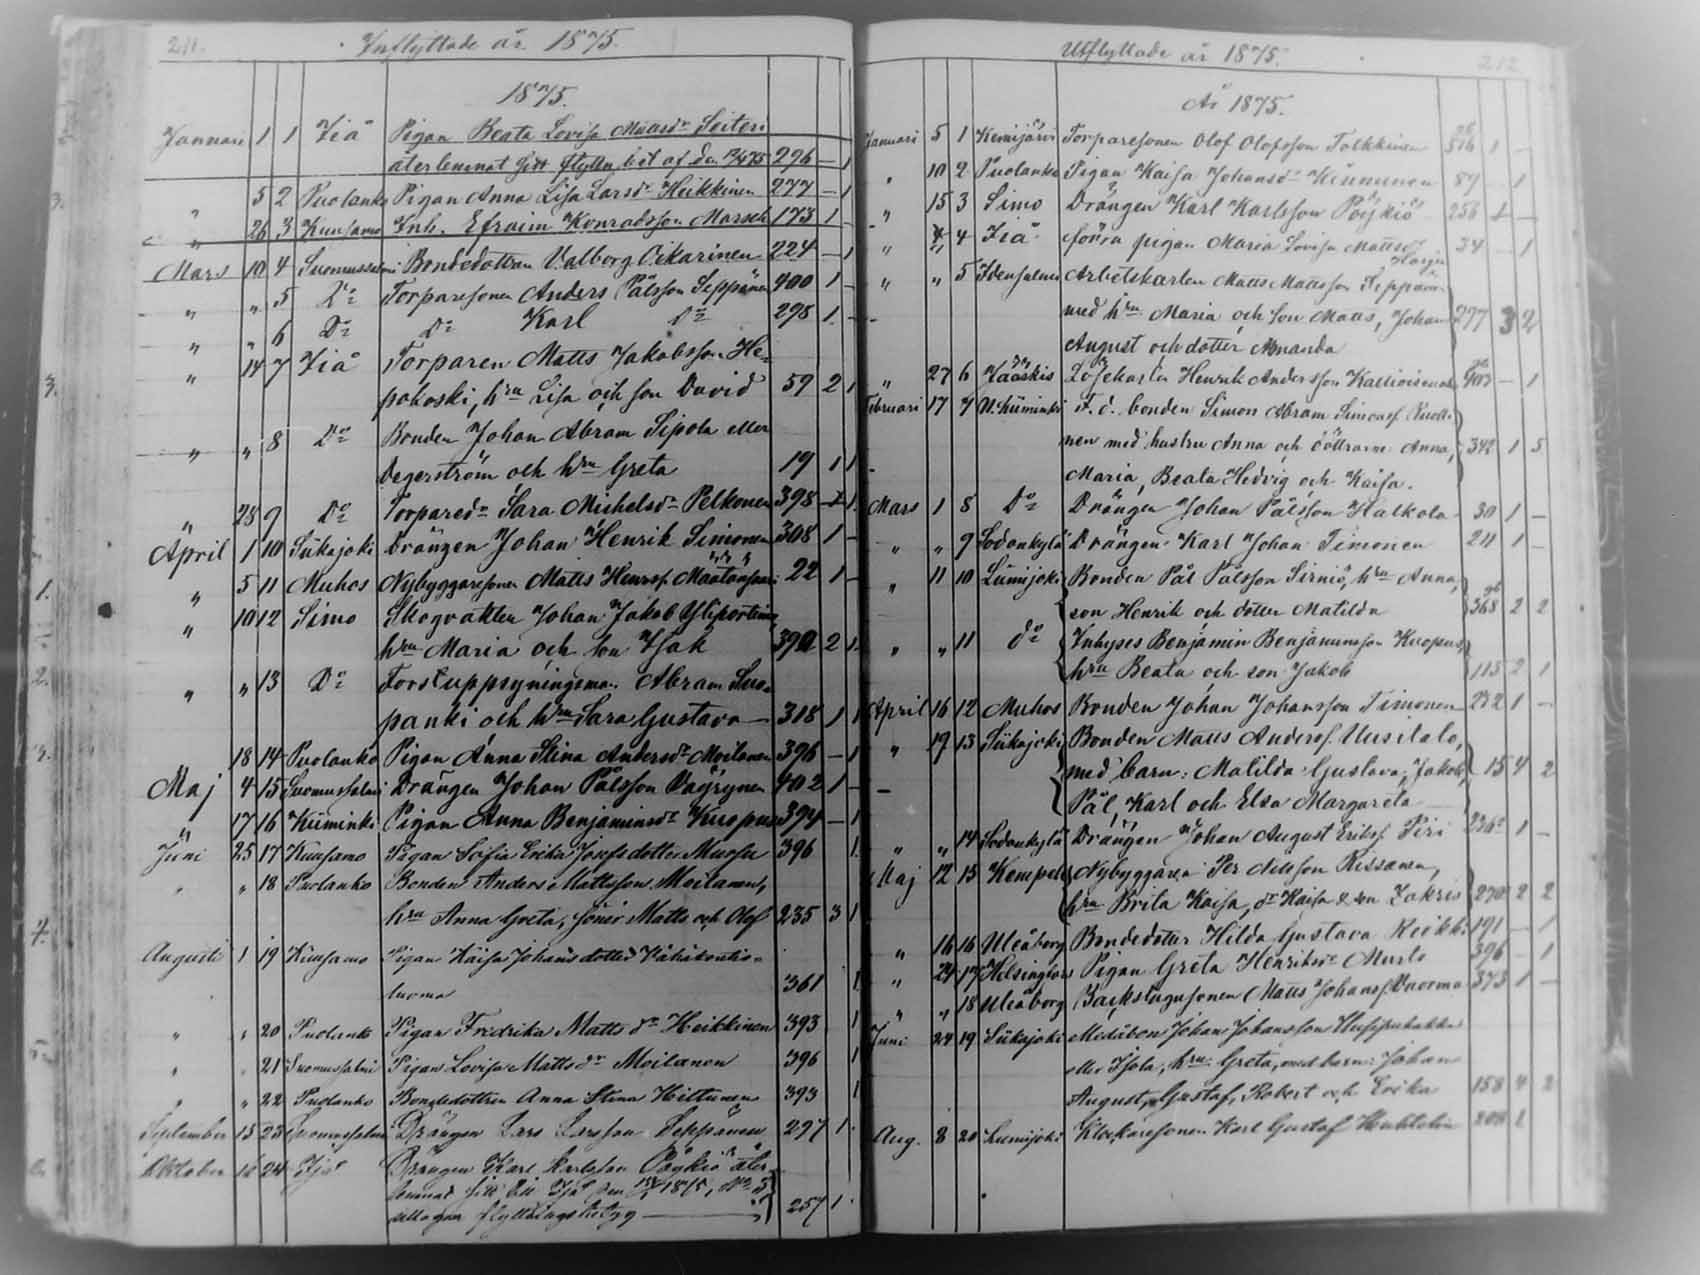 211.
Inflyttade år 1875.
1875.
Januari 1 1 Ziå Pigan Beata Lovisa Mattsdr
återlemnat sitt flyttn. bet af den 296 — 1
" 5 2 Puolanko Pigan Anna Lisa Larsdr Heikkinen 277 — 1
" 26 3 Kuusamo Inh. Efraim Konradsson Marsch 173 1 —
Mars 10 4 Suomussalmi Bondedottren Valborg Oikarinen 224 — 1
" " 5 Do Torparesonen Anders Pålsson Seppänen 400 1 —
" " 6 Do Do Karl Do 298 1 —
" 14 7 Ziå Torparen Matts Jakobsson He-
pokoski, hru Lisa och son David 59 2 1
" " 8 Do Bonden Johan Abram Sipola eller
Degerström och hru Greta 19 1 1
" 28 9 Do Torparedr Sara Michelsdr Pelkonen 398 — 1
April 1 10 Siikajoki Drängen Johan Henrik Simonen 308 1 —
" 5 11 Muhos Nybyggaresonen Matts Henrss. 22 1 —
" 10 12 Simo Skogvakten Johan Jakob Yliportimo
hru Maria och son Isak 390 2 1
" " 13 Do Forstuppsyningsman Abram Suo-
panki och hru Sara Gustava — 318 1 1
18 14 Puolanko Pigan Anna Stina Andersdr Moilanen 396 — 1
Maj 4 15 Suomussalmi Drängen Johan Pålsson Väyrynen 402 1 —
" 17 16 Kiiminki Pigan Anna Benjaminsdr Kuopus 394 — 1
Juni 25 17 Kuusamo Pigan Sofia Erika Josefsdotter Mursu 396 1
" " 18 Puolanko Bonden Anders Mattsson Moilanen,
hru Anna Greta, söner Matts och Olof 235 3 1
Augusti 1 19 Kuusamo Pigan Kaisa Johansdotter
luoma 361 1
" " 20 Puolanko Pigan Fredrika Mattsdr Heikkinen 393 1
" " 21 Suomussalmi Pigan Lovisa Mattsdr Moilanen 396 1
" " 22 Puolanko Bondedottren Anna Stina Hiltunen 393 1
September 15 23 Suomussalmi Drängen Lars Larsson Seppänen 297 1
Oktober 16 24 Drängen Karl Karlsson Pöykiö åter-
lemnat sitt till den 1875, No 3
flyttningsbetyg — 257 1
212
Utflyttade år 1875.
År 1875.
Januari 5 1 Kemijärvi Torparesonen Olof Olofsson Tolkkinen 516 1 —
" 10 2 Puolanko Pigan Kaisa Johansdr Kinnunen 89 — 1
" 15 3 Simo Drängen Karl Karlsson Pöykiö 256 1 —
" " 4 Ziå förra pigan Maria Lovisa Mattsdr 34 — 1
" " 5 Idensalmi Arbetskarlen Matts Mattsson Seppänen
med hru Maria och son Matts, Johan 277 3 2
August och dotter Amanda
" 27 6 Jääskis Henrik Andersson — 1
Februari 17 7 N. Kiiminki F. d. bonden Simon Abram Simonss.
nen med hustru Anna och döttrarne Anna, 342 1 5
Maria, Beata Hedvig och Kaisa.
Mars 1 8 Do Drängen Johan Pålsson Halkola 30 1 —
" " 9 Sodankylä Drängen Karl Johan Timonen 211 1 —
" 11 10 Liminjoki Bonden Pål Pålsson Sirniö, hru Anna,
son Henrik och dotter Matilda 368 2 2
" " 11 do Inhyses Benjamin Benjaminsson Kuopus,
hru Beata och son Jakob 115 2 1
April 16 12 Muhos Bonden Johan Johansson Timonen 232 1 —
" 19 13 Siikajoki Bonden Matts Anderss. Uusitalo,
med barn: Matilda Gustava, Jakob, 15 4 2
Pål, Karl och Elsa Margareta
" " 14 Sodankylä Drängen Johan August Erikss. Piri 236 1 —
Maj 12 15 Kempele Nybyggaren Per Nilsson Kissanen,
hru Brita Kaisa, dr Kaisa & son Zakris 270 2 2
" 16 16 Uleåborg Bondedotter Hilda Gustava 191 — 1
" 24 17 Helsingfors Pigan Greta Henriksdr Murto 396 — 1
" " 18 Uleåborg Backstugusonen Matts Johanss. Vuorma 373 1 —
Juni 24 19 Siikajoki Johan Johansson
eller Isola, hru Greta, med barn: Johan
August, Gustaf, Robert och Erika 158 4 2
Aug. 8 20 Lumijoki Klockaresonen Karl Gustaf 208 1